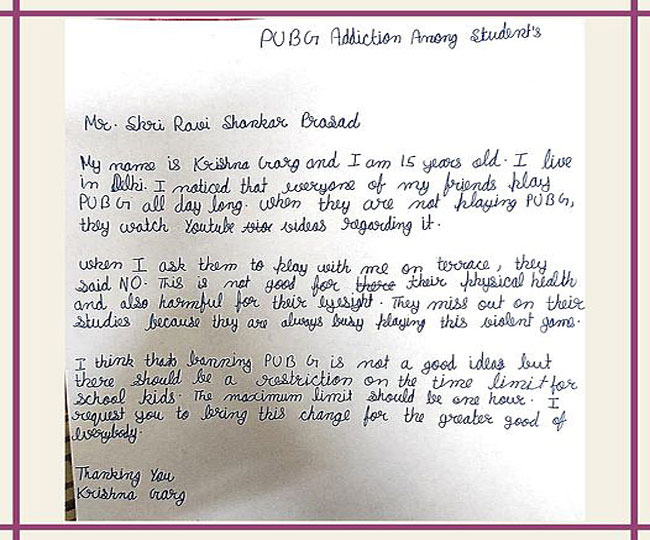 PUBG Addiction Among Student's
Mr. Shri Ravi Shankar Prasad
My name is Krishna Garg and I am 15 years old. I live
in Delhi. I noticed that everyone of my friends play
PUBG all day long. When they are not playing PUBG,
they watch Youtube videos regarding it.
when I ask them to play with me on terrace, they
said NO. This is not good for their physical health
and also harmful for their eyesight. They miss out on their
studies because they are always busy playing this violent game.
I think that banning PUBG is not a good ideas but
there should be a restriction on the time limit for
school kids. The maximum limit should be one hour. I
request you to bring this change for the greater good of
everybody.
Thanking You
Krishna Garg